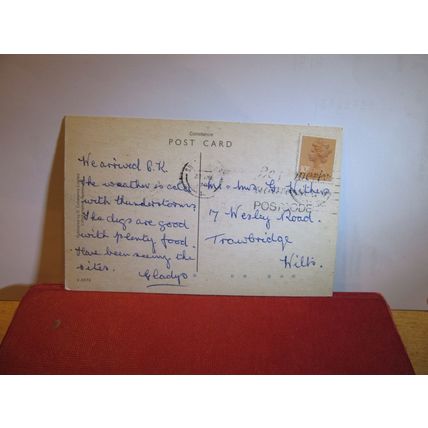 Constance
POST CARD
We arrived O.K.
the weather is cold
with thunderstorms
the digs are good
with plenty food.
Have been seeing the
sites. Gladys
Mr & Mrs
7 Wesley Road.
Trowbridge
Wilts.
POSTCODE